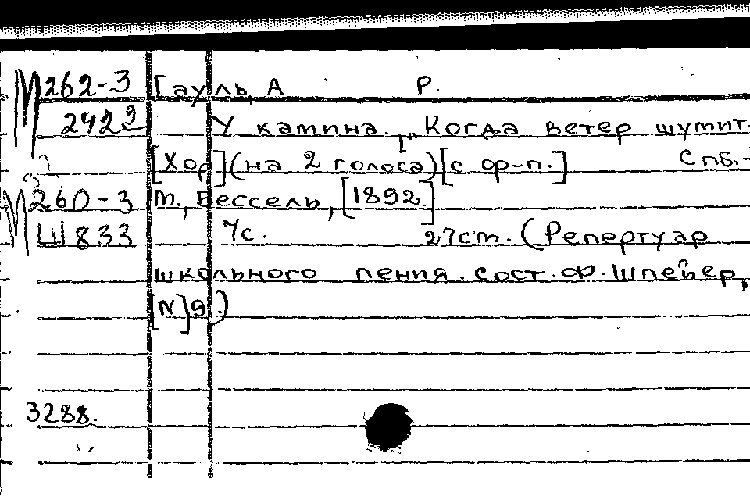 М262-3 Гауль, А Р.
2423 У камина. „Когда ветер шумит.
[Хор] (на 2 голоса) [с ф-п.] Спб.-
М260-3 м., Бессель, [1892]
Ш833 7с. 27см. (Репертуар
школьного пения. сост. Ф. Шпейер,
[N]9)
3288.